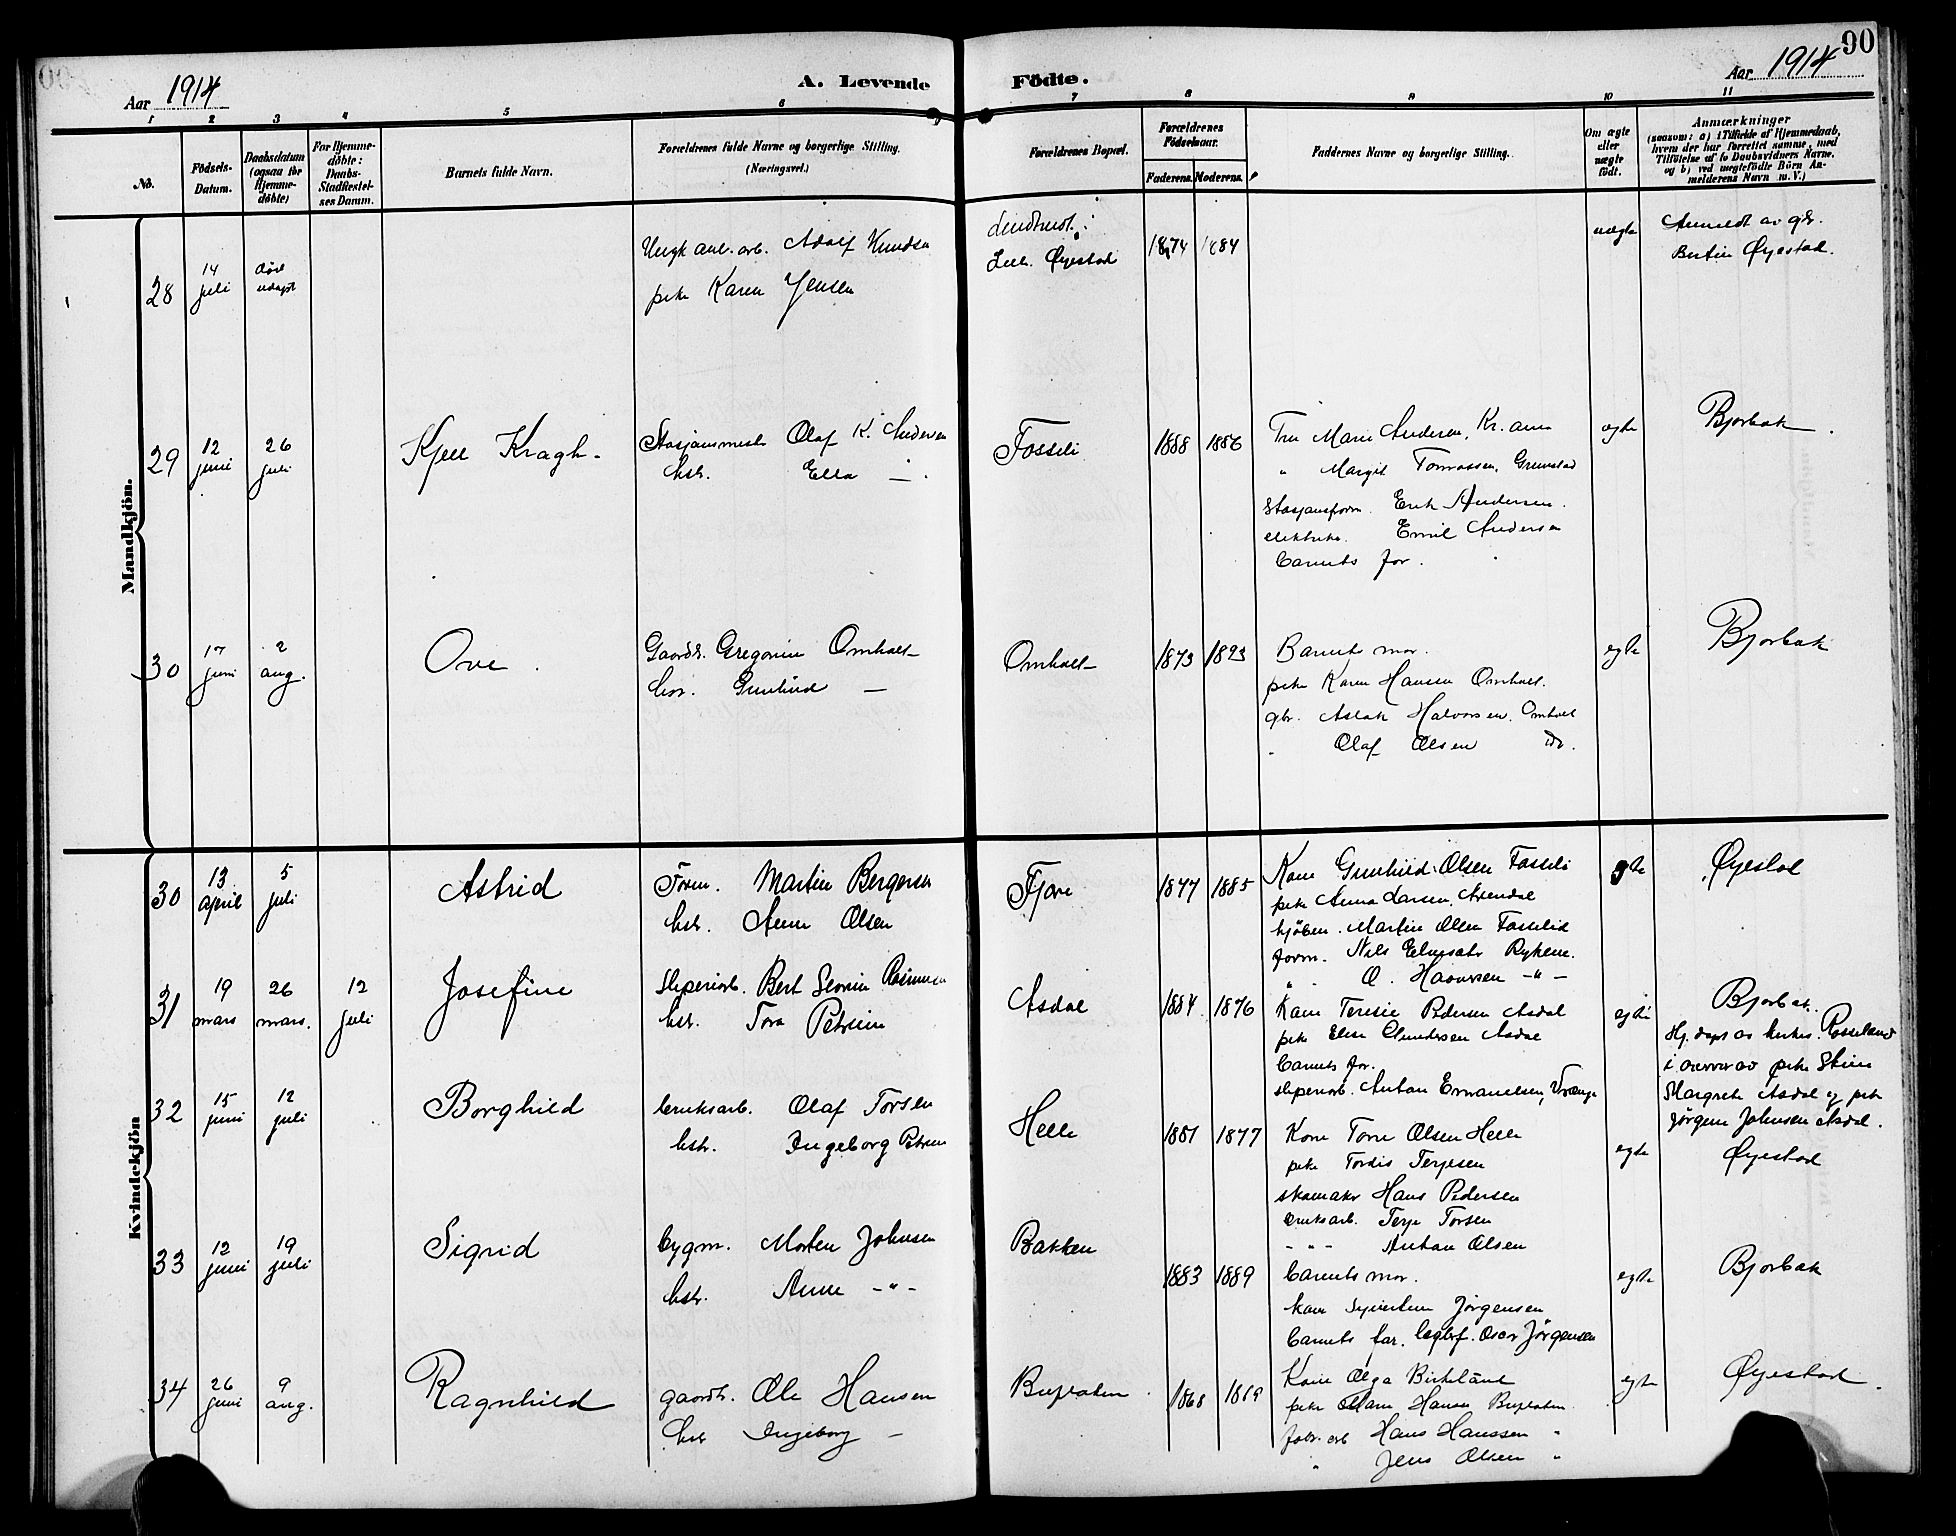 90
Aar 1914
A. Levende Födte.
Aar 1914
1 2 3 4 5 6 7 8 9 10 11
No.
Födsels-Datum.
Daabsdatum (ogsaa for Hjemme-döbte)
For Hjemme-döbte: Daabs-Stadfæstel-ses Datum.
Barnets fulde Navn.
Forældrenes fulde Navne og borgerlige Stilling.
(Næringsvei.)
Forældrenes Bopæl.
Forældrenes Födselsaar.
Faderens. Moderens.
Faddernes Navne og borgerlige Stilling.
Om ægte eller uægte födt.
Anmærkninger
(saasom: a) i Tilfælde af Hjemmedaab,
hvem der har forrettet samme, med
Tilföielse af to Daabsvidners Navne,
og b) ved uægtefödte Börn An-
melderens Navn m. V.)
Mandkjön.
28
14 juli
død udøpt
Ungk. anl. arb. Adolf Knudsen
pike Karen Jensen
Øyestad
1874 1884
uægte
Anmeldt av gbr.
Bertin Øyestad.
29
12 juni
26 juli
Kjell Kragh.
Stasjonsmester Olaf K. Andersen
hstr. Ella — .
Fosseli
1888 1886
Fru Marie Andersen, Kr.ania
" Margit Tomassen, Grimstad
Stasjonsform. Erik Andersen.
elektrike. Emil Andersen
barnets far.
egte
Bjorbak.
30
17 juni
2 aug.
Ove.
Gaardb. Gregorius Omholt
hus. Gunhild —
Omholt
1873 1893
Barnets mor.
pike Karen Hansen Omholt.
gbr. Aslak Halvorsen. Omholt
" Olaf Olsen do.
egte
Bjorbak
Kvindekjön
30
13 april
5 juli
Astrid
Form. Martin Bergersen
hstr. Anne Olsen
Fjære
1877 1885
Kone Gunhild Olsen Fosseli
pike Anna Larsen, Arendal
kjøbm. Martin Olsen Fosselid
form. Nils Rykene.
" O. Haavorsen — " —
egte
Øyestad
31
19 mars
26 mars.
12 juli
Josefine
Sliperiarb. Bert Severin Rasmussen
hstr. Tora Petrine
Asdal
1884 1876
Kone Teresie Pedersen Asdal
pike Elise Gundersen Asdal
barnets far.
sliperiarb. Anton Emanuelsen, Vrænge
egte
Bjorbak.
Hj. døpt av kirkes. Rosseland
i overvær av pike Stine
Margrete Asdal og pike
Jørgine Johnsen Asdal.
32
15 juni
12 juli
Borghild
bruksarb. Olaf Torsen
hstr. Ingeborg Petrine
Helle
1881 1877
Kone Tone Olsen Helle
pike Tordis Terjesen
skomaker Hans Pedersen
bruksarb. Terje Torsen
- " - Anton Olsen
egte
Øyestad
33
12 juni
19 juli
Sigrid
bygm. Morten Johnsen
hstr. Anne - " -
Bakken
1883 1889
barnets mor.
kone Syvertine Jørgensen
barnets far. Oscar Jørgensen
egte
Bjorbak
34
26 juni
9 aug.
Ragnhild
gaardb. Ole Hansen
hstr Ingeborg —
Buplaten
1868 1869
Kone Olga Birkeland
pike Marie Hansen Buplaten.
fabr. arb Hans Hanssen "
" Jens Olsen "
egte
Øyestad.